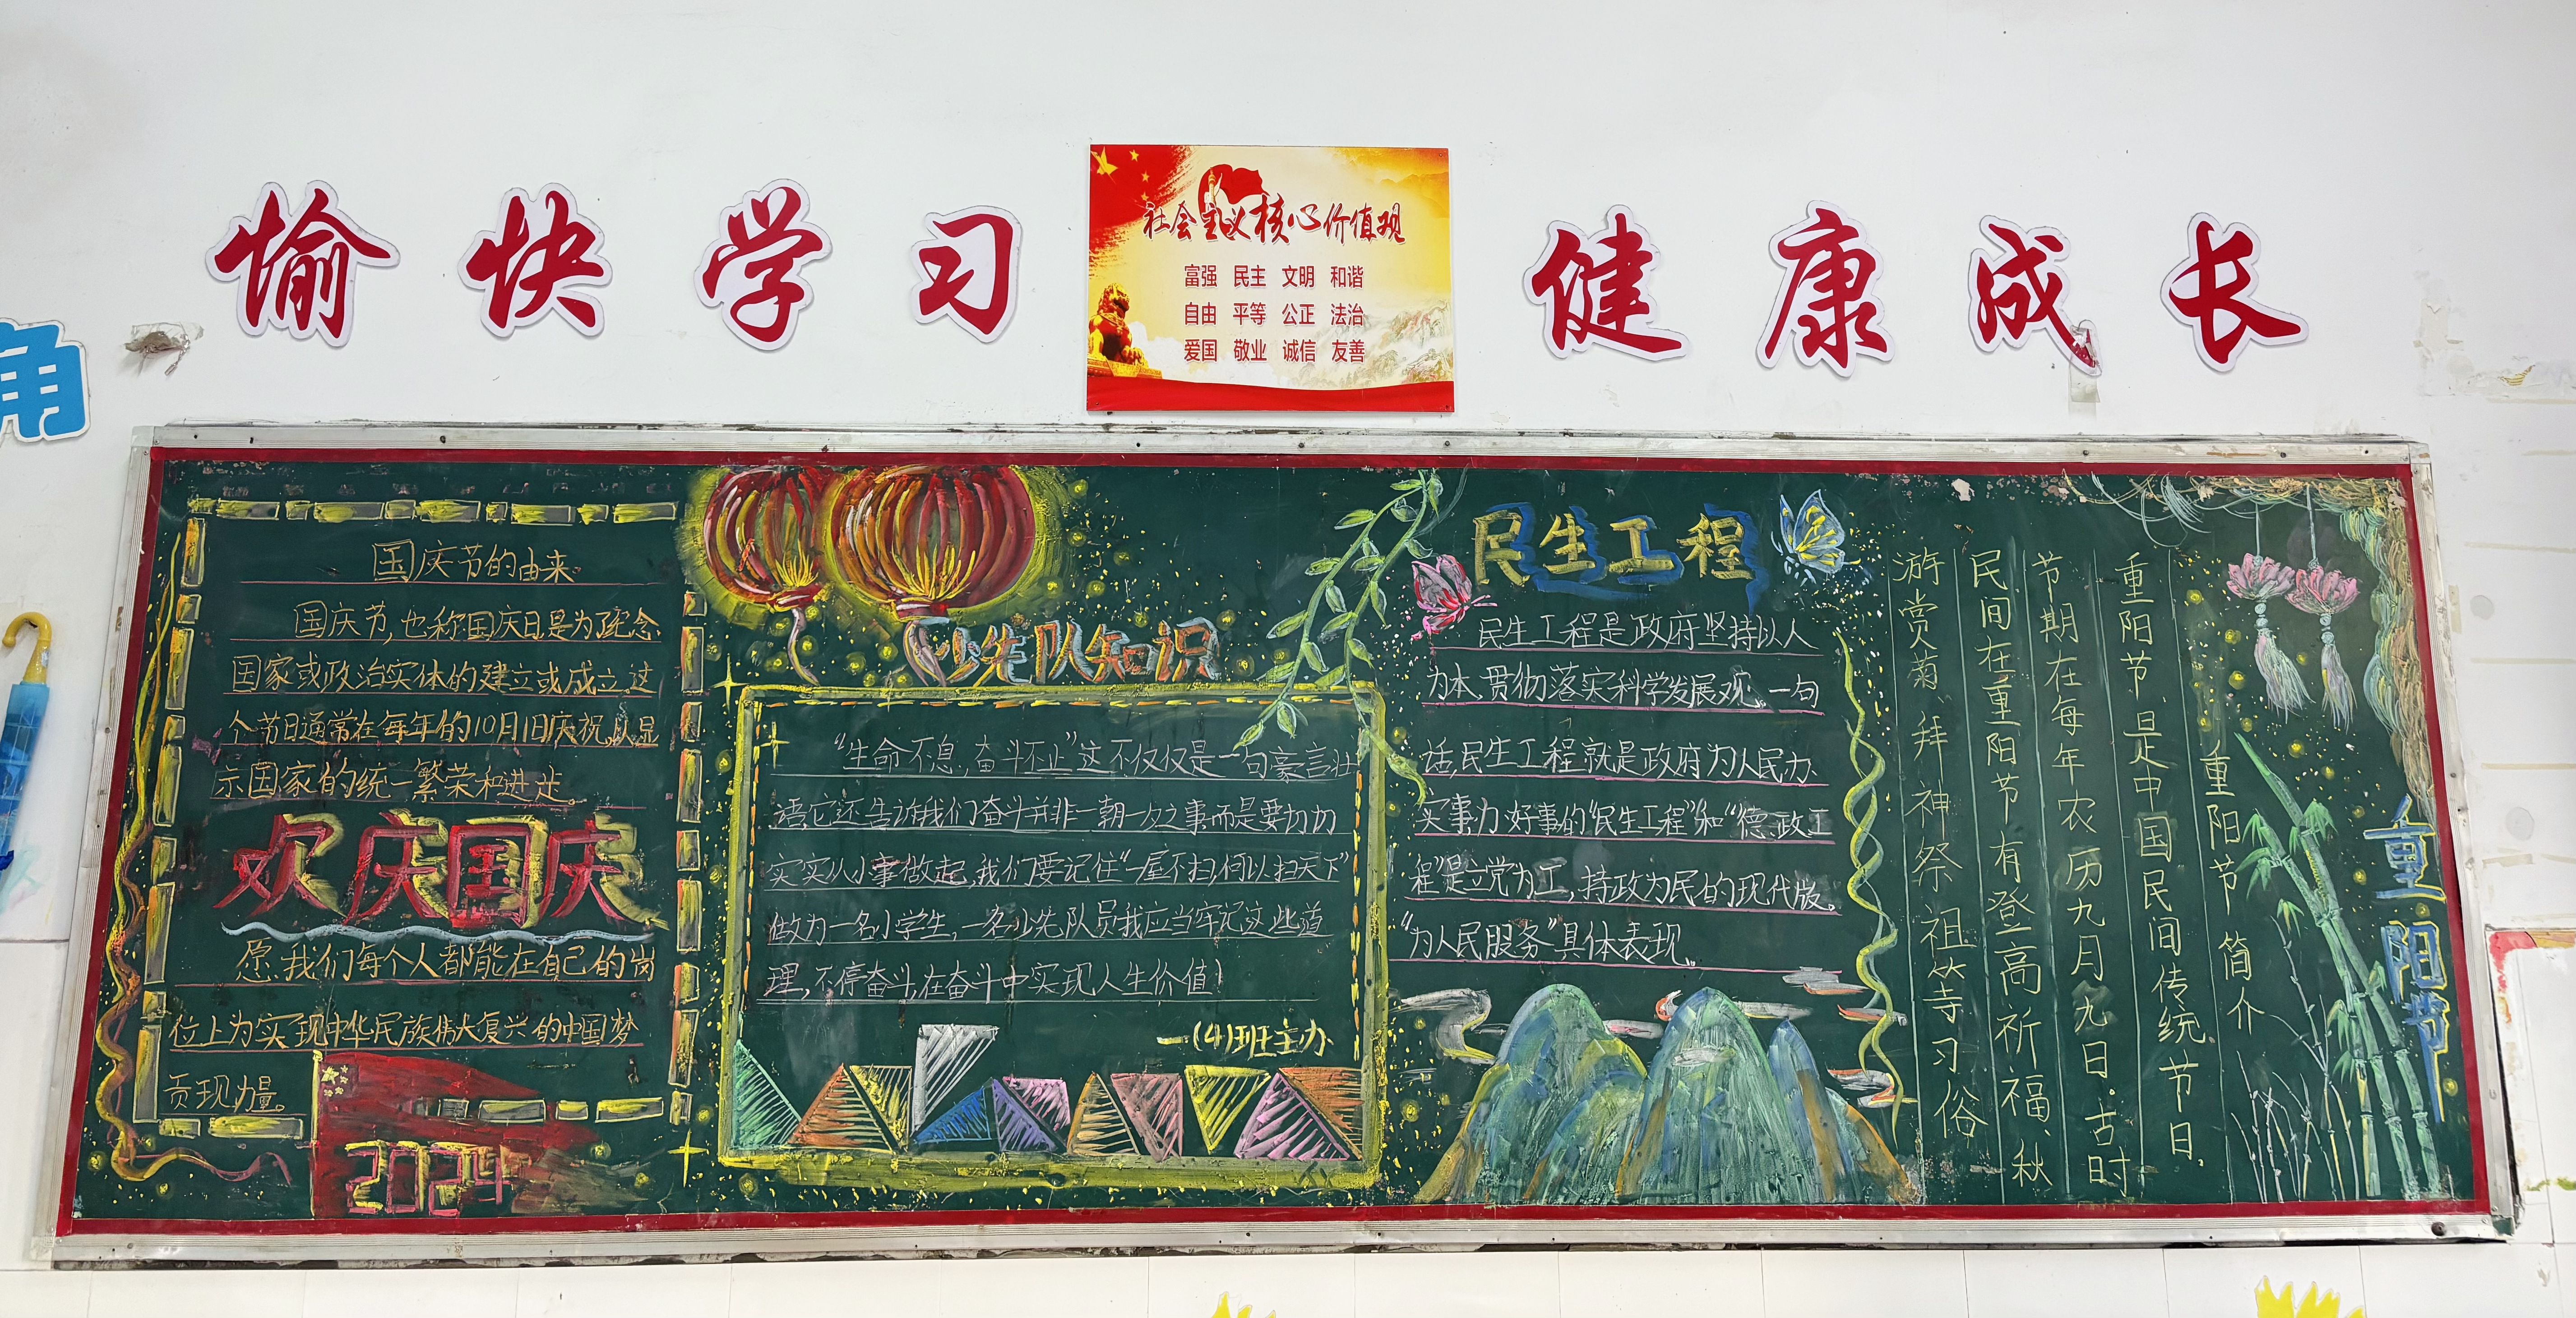 愉快学习
社会主义核心价值观
富强 民主 文明 和谐
自由 平等 公正 法治
爱国 敬业 诚信 友善
健康成长
角
国庆节的由来
国庆节,也称国庆日是为了纪念
国家或政治实体的建立或成立.这
个节日通常在每年的10月1日庆祝,以显
示国家的统一繁荣和进步。
欢庆国庆
愿我们每个人都能在自己的岗
位上为实现中华民族伟大复兴的中国梦
贡现力量。
2024
少先队知识
“生命不息,奋斗不止”这不仅仅是一句豪言壮
语,它还告诉我们奋斗并非一朝一夕之事而是要切切
实实从小事做起,我们要记住“一屋不扫,何以扫天下”
做为一名小学生,一名少先队员我应当牢记这些道
理,不停奋斗,在奋斗中实现人生价值!
一(4)班主办
民生工程
民生工程是政府坚持以人
为本、贯彻落实科学发展观。一句
话,民生工程就是政府为人民办
实事办好事的“民生工程”和“德政工
程”是立党为工,持政为民的现代版。
“为人民服务”具体表现。
重阳节
重阳节简介
重阳节,是中国民间传统节日,
节期在每年农历九月九日。古时
民间在重阳节有登高祈福、秋
游赏菊、拜神祭祖等习俗